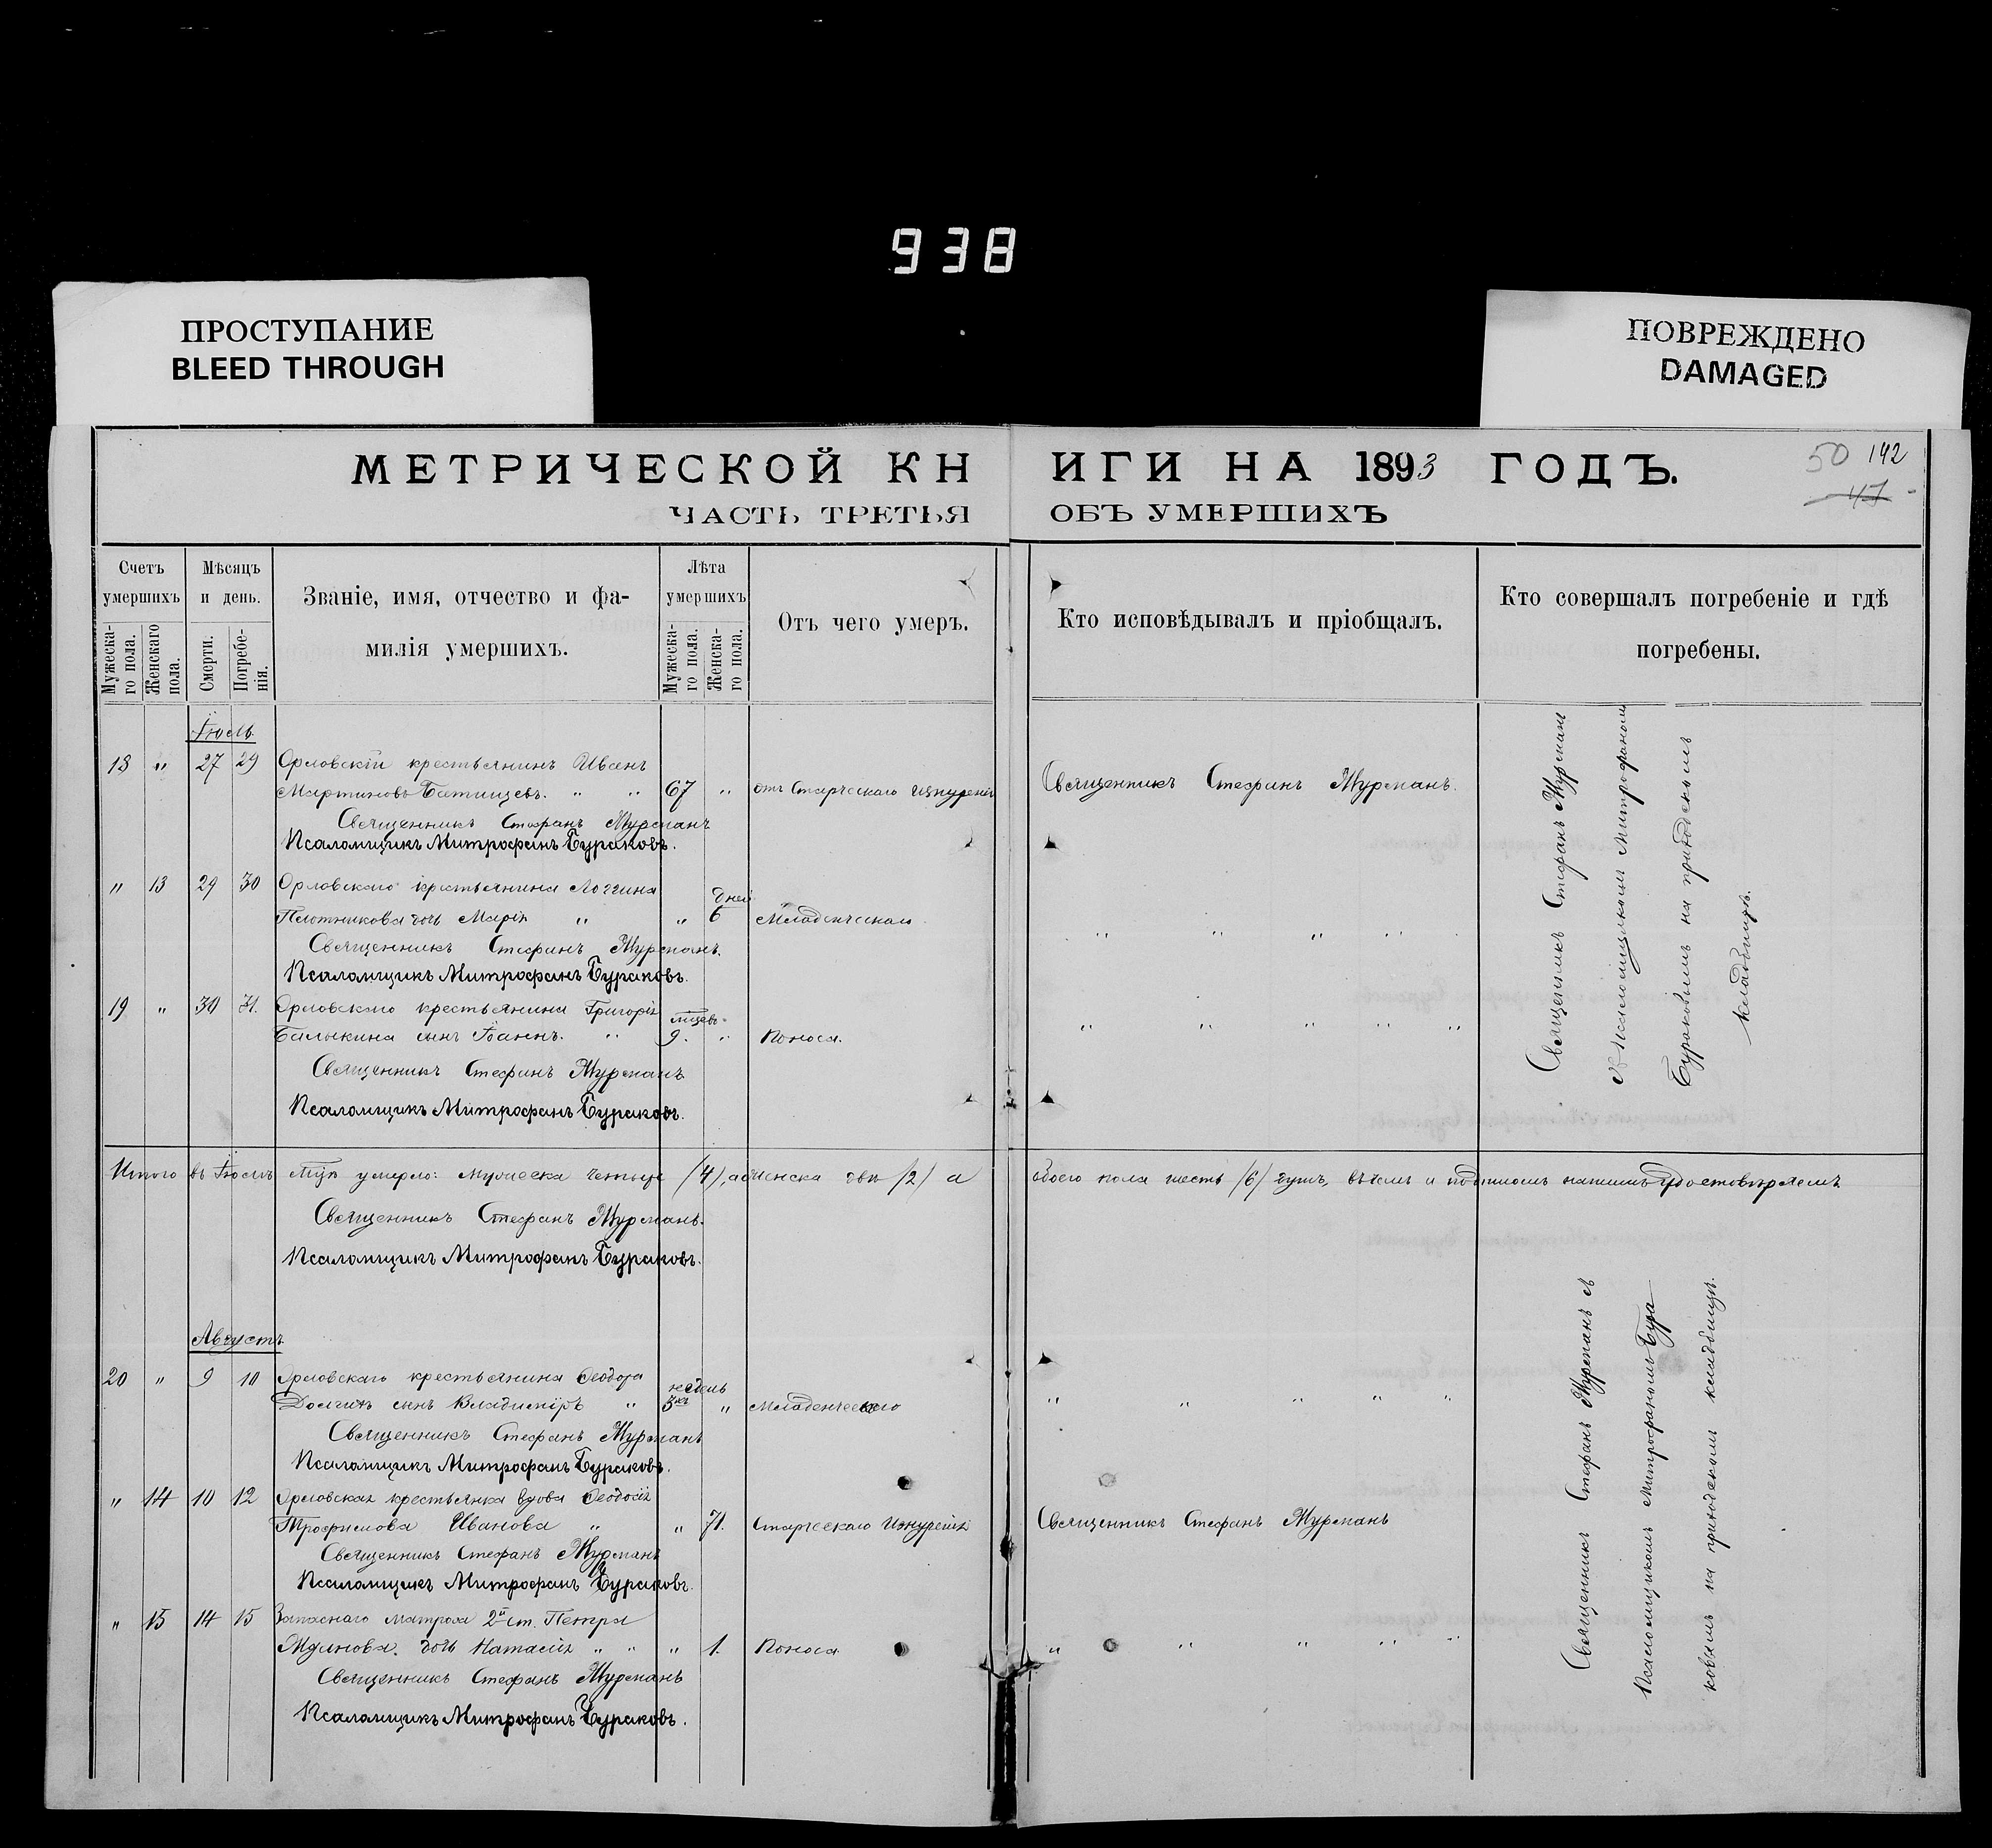 938
ПРОСТУПАНИЕ
BLEED THROUGH
ПОВРЕЖДЕНО
DAMAGED
МЕТРИЧЕСКОЙ КНИГИ НА 1893 ГОДЪ.
50 142
47
ЧАСТЬ ТРЕТЬЯ ОБЪ УМЕРШИХЪ
Счетъ умершихъ
Мужеска-го пола.
Женскаго пола.
Мѣсяцъ и день.
Смерти.
Погребе-нія.
Званіе, имя, отчество и фа-
милія умершихъ.
Лѣта умершихъ
Мужеска-го пола.
Женска-го пола.
Отъ чего умеръ.
Кто исповѣдывалъ и пріобщалъ.
Кто совершалъ погребеніе и гдѣ
погребены.
Іюль
18 " 27 29 Орловскій крестьянинъ Иванъ
Мартиновъ Батищевъ. " " 67 " отъ Старческаго изнуренія Священникъ Стефанъ Журманъ.
Священникъ Стефанъ Журманъ
Псаломщикъ Митрофанъ Бураковъ.
" 13 29 30 Орловскаго крестьянина Логгина
Плотникова дочь Марія " " дней 6 Младенческаго " " " "
Священникъ Стефанъ Журманъ.
Псаломщикъ Митрофанъ Бураковъ.
19 " 30 31. Орловскаго крестьянина Григорія
Балыкина сынъ Іоаннъ. " мѣсцевъ 9. " Поноса. " " " " "
Священникъ Стефанъ Журманъ
Псаломщикъ Митрофанъ Бураковъ.
Священникъ Стефанъ Журманъ
съ Псаломщикомъ Митрофаномъ
Бураковымъ на приходскомъ
кладбищѣ.
Итого въ Іюлѣ мцѣ умерло: мужеска четыре /4/, а женска двѣ /2/ а обоего пола шесть /6/ душъ, въ чемъ и подписомъ нашимъ удостовѣряемъ
Священникъ Стефанъ Журманъ.
Псаломщикъ Митрофанъ Бураковъ.
Августъ
20 " 9 10 Орловскаго крестьянина Ѳеодора
Долгихъ сынъ Владиміръ " недель 3хъ " Младенческаго " " " " "
Священникъ Стефанъ Журманъ
Псаломщикъ Митрофанъ Бураковъ.
" 14 10 12 Орловская крестьянка вдова Ѳеодосія
Трофимова Иванова " " 71. Старческаго изнуренія Священникъ Стефанъ Журманъ
Священникъ Стефанъ Журманъ
Псаломщикъ Митрофанъ Бураковъ.
" 15 14 15 Запаснаго матроса 2й ст. Петра
дочь Наталія " " " 1. Поноса " " " " "
Священникъ Стефанъ Журманъ
Псаломщикъ Митрофанъ Бураковъ.
Священникъ Стефанъ Журманъ съ
Псаломщикомъ Митрофаномъ Бура
ковымъ на приходскомъ кладбищѣ.